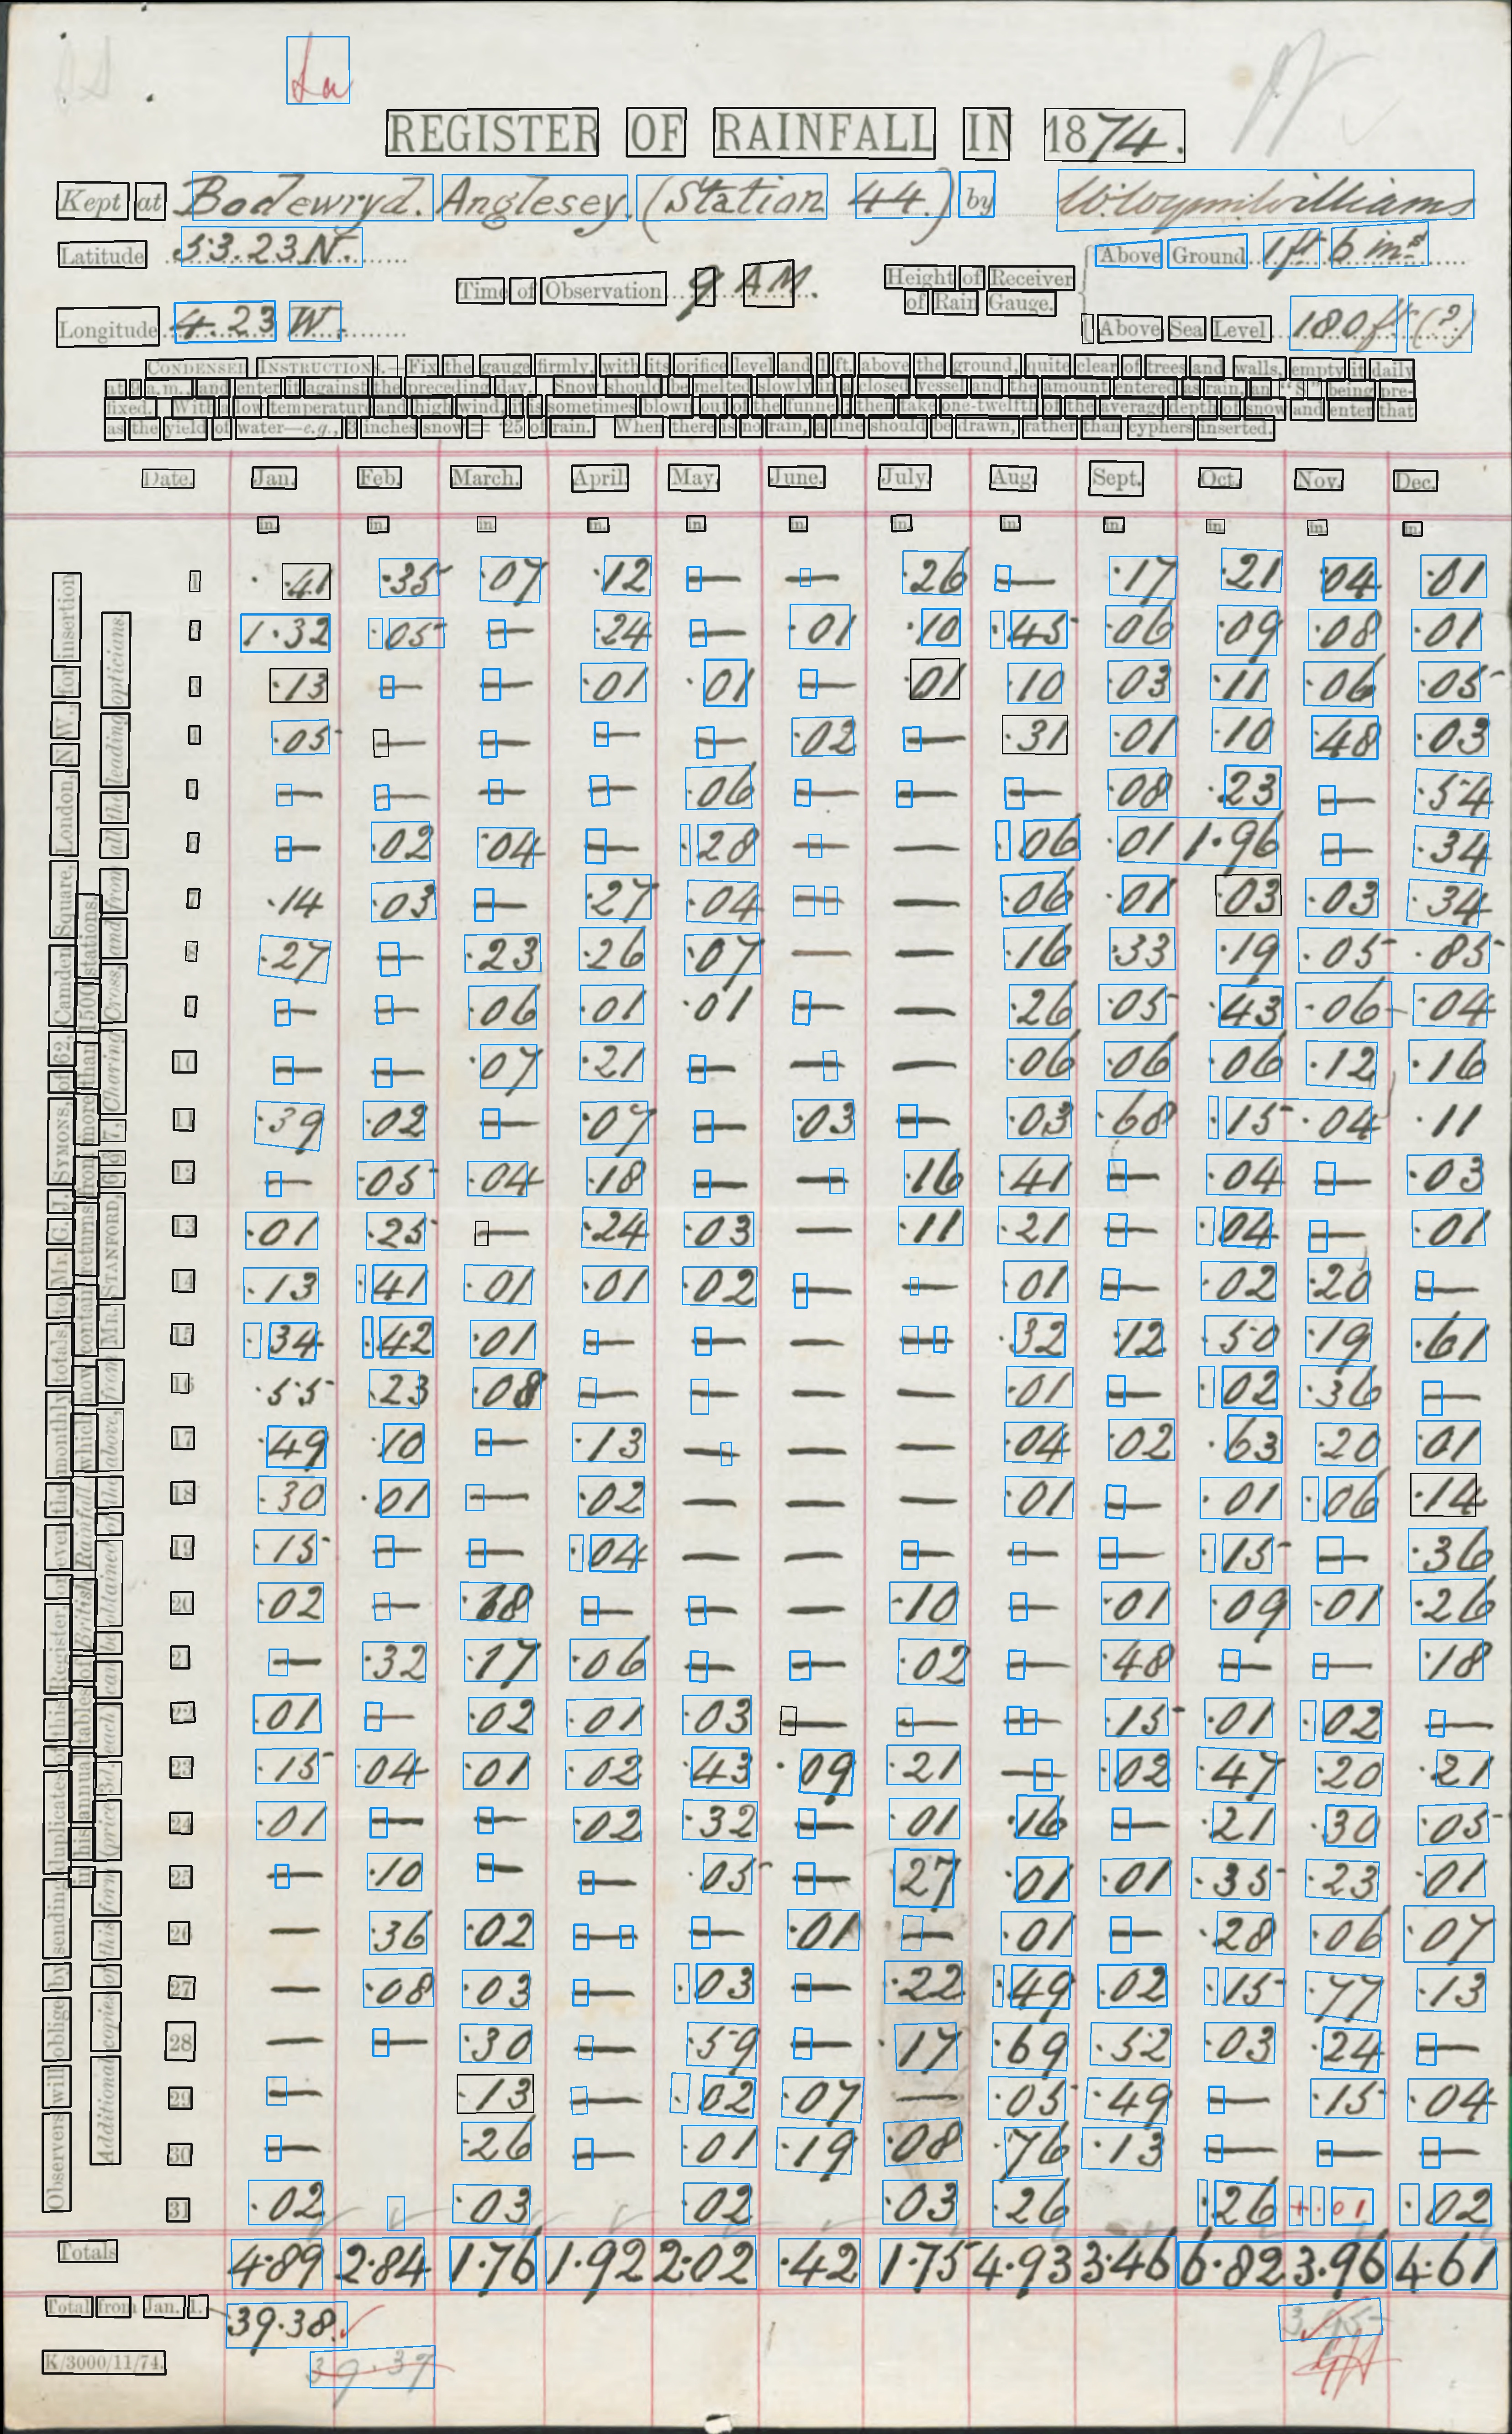 La
REGISTER OF RAINFALL IN 1874.
Kept at Bodewryd. Anglesey. (Station 44.) by W. Wynn Williams
Latitude 53.23 N.
Above Ground 1 ft 6 ins
Time of Observation 9 A.M.
Height of Receiver of Rain Gauge.
Longitude 4.23 W.
Above Sea Level 180 ft (?)
CONDENSED INSTRUCTIONS.—Fix the gauge firmly, with its orifice level and 1 ft. above the ground, quite clear of trees and walls, empty it daily
at 9 a.m., and enter it against the preceding day. Snow should be melted slowly in a closed vessel and the amount entered as rain, an "S" being pre-
fixed. With a low temperature and high wind, it is sometimes blown out of the funnel; then take one-twelfth of the average depth of snow and enter that
as the yield of water—e.g., 3 inches snow = ·25 of rain. When there is no rain, a line should be drawn, rather than cyphers inserted.
Date. Jan. Feb. March. April. May. June. July. Aug. Sept. Oct. Nov. Dec.
in. in. in. in. in. in. in. in. in. in. in. in.
1 ·41 ·35 ·07 ·12 — — ·26 — ·17 ·21 ·04 ·01
2 1·32 ·05 — ·24 — ·01 ·10 ·45 ·06 ·09 ·08 ·01
3 ·13 — — ·01 ·01 — ·01 ·10 ·03 ·11 ·06 ·05
4 ·05 — — — — ·02 — ·31 ·01 ·10 ·48 ·03
5 — — — — ·06 — — — ·08 ·23 — ·54
6 — ·02 ·04 — ·28 — — ·06 ·01 1·96 — ·34
7 ·14 ·03 — ·27 ·04 — — ·06 ·01 ·03 ·03 ·34
8 ·27 — ·23 ·26 ·07 — — ·16 ·33 ·19 ·05 ·85
9 — — ·06 ·01 ·01 — — ·26 ·05 ·43 ·06 ·04
10 — — ·07 ·21 — — — ·06 ·06 ·06 ·12 ·16
11 ·39 ·02 — ·07 — ·03 — ·03 ·68 ·15 ·04 ·11
12 — ·05 ·04 ·18 — — ·16 ·41 — ·04 — ·03
13 ·01 ·25 — ·24 ·03 — ·11 ·21 — ·04 — ·01
14 ·13 ·41 ·01 ·01 ·02 — — ·01 — ·02 ·20 —
15 ·34 ·42 ·01 — — — — ·32 ·12 ·50 ·19 ·61
16 ·55 ·23 ·08 — — — — ·01 — ·02 ·36 —
17 ·49 ·10 — ·13 — — — ·04 ·02 ·63 ·20 ·01
18 ·30 ·01 — ·02 — — — ·01 — ·01 ·06 ·14
19 ·15 — — ·04 — — — — — ·15 — ·36
20 ·02 — ·18 — — — ·10 — ·01 ·09 ·01 ·26
21 — ·32 ·17 ·06 — — ·02 — ·48 — — ·18
22 ·01 — ·02 ·01 ·03 — — — ·15 ·01 ·02 —
23 ·15 ·04 ·01 ·02 ·43 ·09 ·21 — ·02 ·47 ·20 ·21
24 ·01 — — ·02 ·32 — ·01 ·16 — ·21 ·30 ·05
25 — ·10 — — ·05 — ·27 ·01 ·01 ·35 ·23 ·01
26 — ·36 ·02 — — ·01 — ·01 — ·28 ·06 ·07
27 — ·08 ·03 — ·03 — ·22 ·49 ·02 ·15 ·77 ·13
28 — — ·30 — ·59 — ·17 ·69 ·52 ·03 ·24 —
29 — ·13 — ·02 ·07 — ·05 ·49 — ·15 ·04
30 — ·26 — ·01 ·19 ·08 ·76 ·13 — — —
31 ·02 ·03 ·02 ·03 ·26 ·26 +·01 ·02
Totals 4·89 2·84 1·76 1·92 2·02 ·42 1·75 4·93 3·46 6·82 3·96 4·61
Total from Jan. 1. 39·38 3.95
K/3000/11/74. 39·37
Observers will oblige by sending duplicates of this Register, or even the monthly totals, to Mr. G. J. SYMONS, of 62, Camden Square, London, N.W., for insertion
in his annual tables of British Rainfall which now contain returns from more than 1500 stations.
Additional copies of this form (price 3d. each) can be obtained of the above, from Mr. STANFORD, 6 & 7, Charing Cross, and from all the leading opticians.